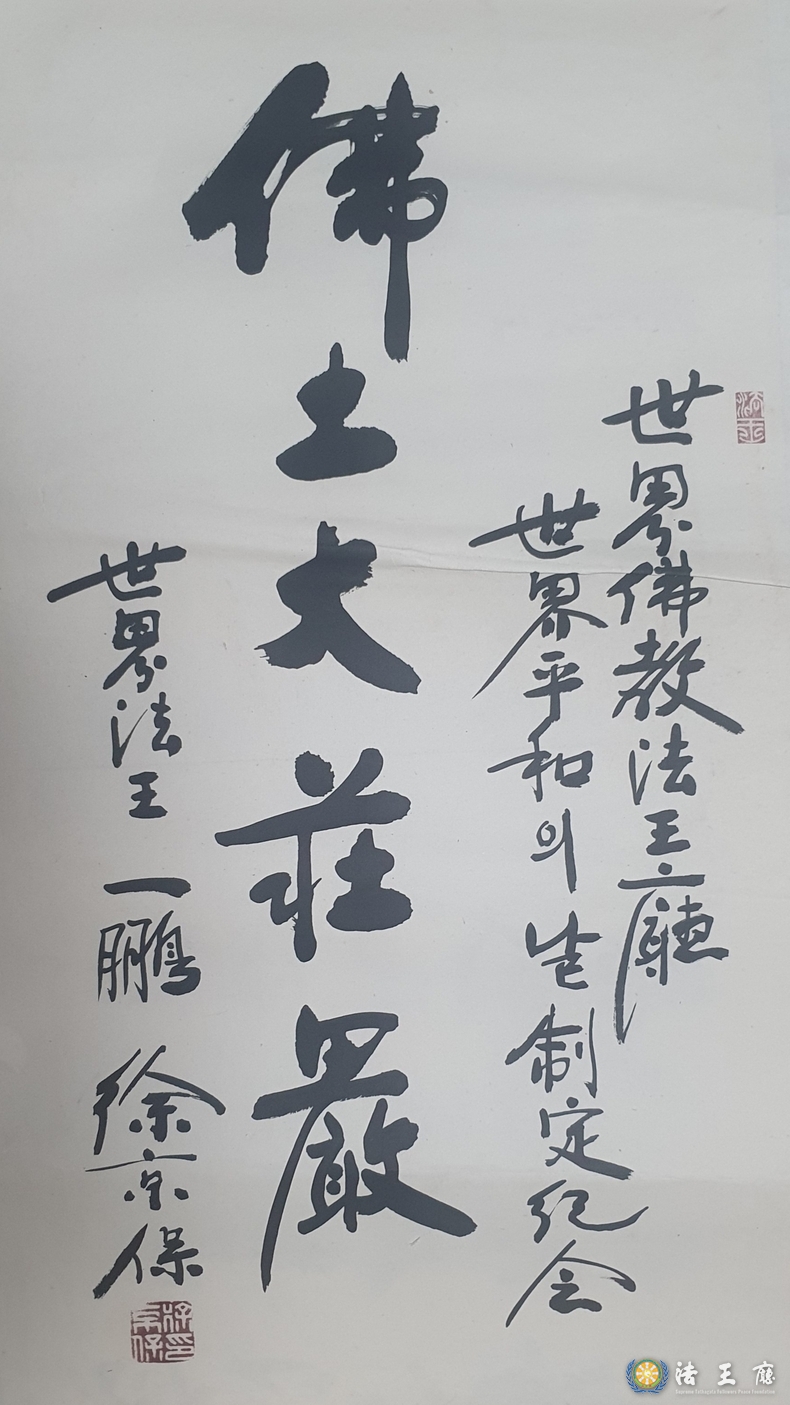 世界佛教法王廳
世界平和의날制定紀念
佛土大莊嚴
世界法王 一鵬 徐京保
法王廳